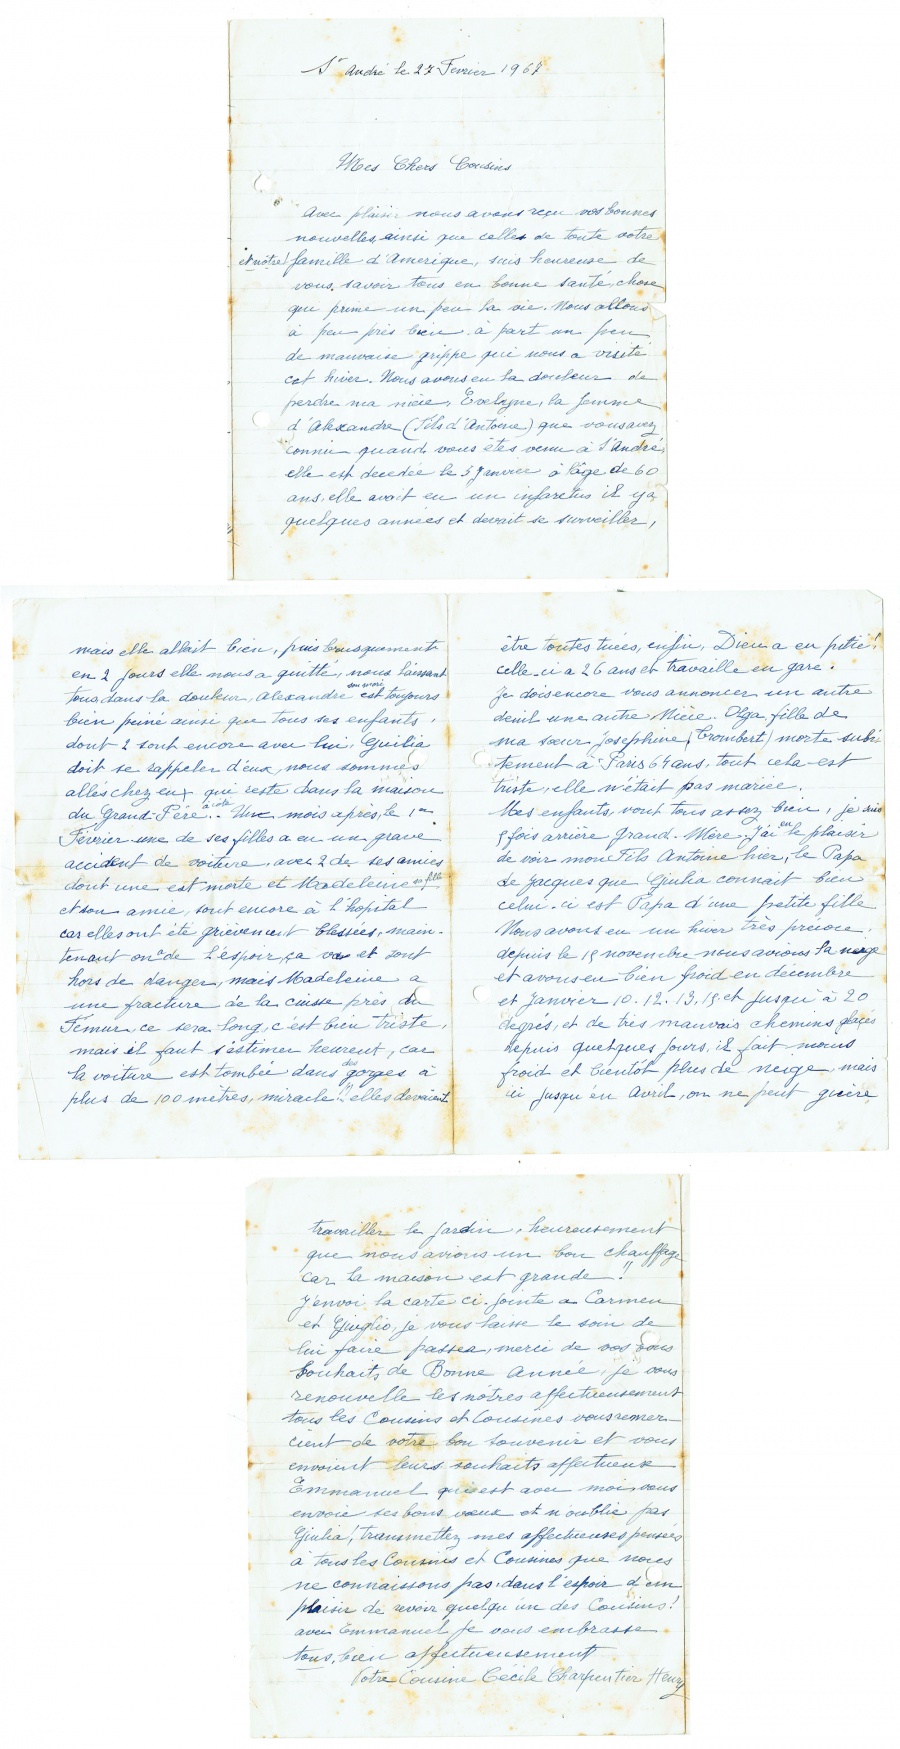 St André le 27 Fevrier 1967
Mes Chers Cousins
Avec plaisir nous avons reçu vos bonnes
nouvelles, ainsi que celles de toute votre
et nôtre! famille d'Amerique, suis heureuse de
vous savoir tous en bonne santé, chose
qui prime un peu la vie. Nous allons
à peu près bien à part un peu
de mauvaise grippe qui nous a visité
cet hiver. Nous avons eu la douleur de
perdre ma nièce, Evelyne, la femme
d'Alexandre (Fils d'Antoine) que vous avez
connu quand vous êtes venu à St André,
elle est decedée le 5 Janvier à l'âge de 60
ans, elle avait eu un infarctus il y a
quelques années et devait se surveiller,
mais elle allait bien, puis brusquement
en 2 jours elle nous a quitté, nous laissant
tous dans la douleur, Alexandre son mari est toujours
bien peiné ainsi que tous ses enfants,
dont 2 sont encore avec lui, Guilia
doit se rappeler d'eux, nous sommes
alles chez eux qui reste dans la maison
du Grand-Père à côté. Un mois après, le 1er
Février une de ses filles a eu un grave
accident de voiture, avec 2 de ses amies
dont une est morte et Madeleine sa fille
et son amie, sont encore à l'hopital
car elles ont été grièvement blessées, main-
tenant on a de l'espoir, ça va et sont
hors de danger, mais Madeleine a
une fracture de la cuisse près du
Fémur, ce sera long, c'est bien triste,
mais il faut s'estimer heureux, car
la voiture est tombée dans des gorges à
plus de 100 mètres, miracle!! elles devaient
être toutes tuées, enfin, Dieu a eu pitié!
celle-ci a 26 ans et travaille en gare.
Je dois encore vous annoncer un autre
deuil une autre Nièce. Olga, fille de
ma sœur Josephine (Trombert) morte subi-
tement à Paris 64 ans, tout cela est
triste, elle n'était pas mariée.
Mes enfants, vont tous assez bien, je suis
5 fois arrière Grand-Mère, j'ai eu le plaisir
de voir mon Fils Antoine hier, le Papa
de Jacques que Giulia connait bien
celui-ci est Papa d'une petite fille
Nous avons eu un hiver très précoce,
depuis le 15 novembre nous avions la neige
et avons eu bien froid en décembre
et Janvier 10. 12. 13. 15, et jusqu'à 20
degrés, et de très mauvais chemins glacés
Depuis quelques jours, il fait moins
froid et bientôt plus de neige, mais
ici jusqu'en Avril, on ne peut guère
travailler le jardin, heureusement
que nous avions un bon chauffage
car la maison est grande!!
J'envoi la carte ci-jointe a Carmen
et Giuglio, je vous laisse le soin de
lui faire passer, merci de vos bons
Souhaits de Bonne Année, je vous
renouvelle les notres affectueusement
tous les Cousins et Cousines vous remer-
cient de votre bon souvenir et vous
envoient leurs souhaits affectueux
Emmanuel qui est avec moi, vous
envoie ses bons vœux et n'oublie pas
Giulia! transmettez mes affectueuses pensées
à tous les Cousins et Cousines que nous
ne connaissons pas, dans l'espoir d'un
plaisir de revoir quelqu'un des Cousins!
avec Emmanuel je vous embrasse
tous, bien affectueusement
Votre Cousine Cécile Charpentier Henry